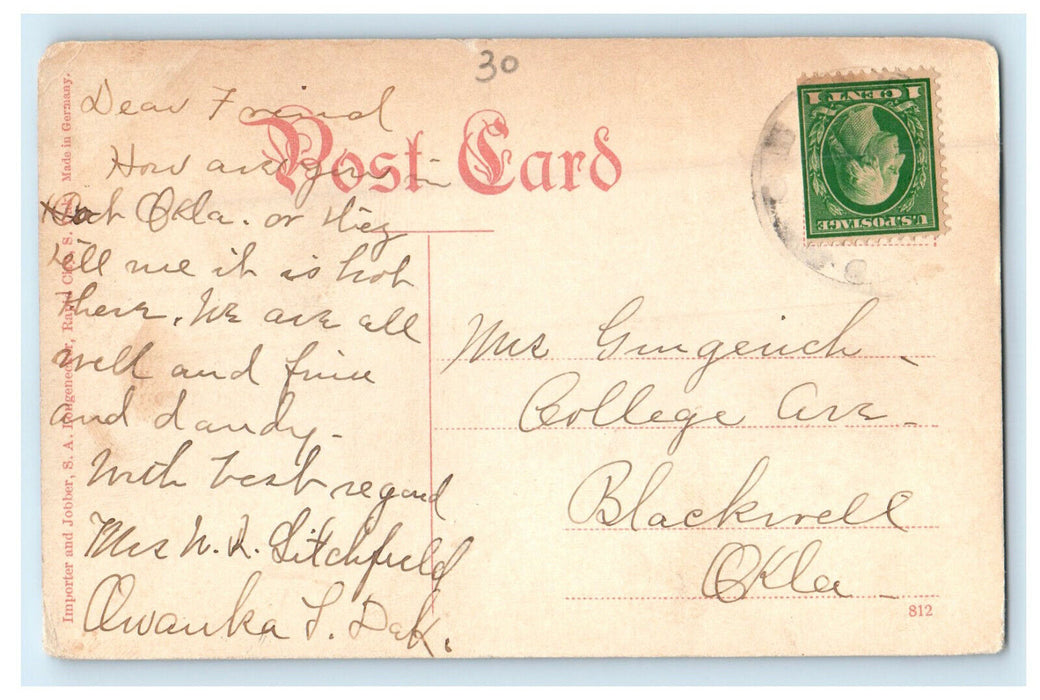 30
Post Card
1 CENT 1
U.S. POSTAGE
Dear Friend
How are you in
Okla. or they
tell me it is hot
there. We are all
well and fine
and dandy.
With best regard
Mrs N. R. Litchfield
Owanka S. Dak.
Mrs Gingerich
College Ave
Blackwell
Okla
812
Importer and Jobber, S. A. Bougeneder, Rapid City, S. Dak. Made in Germany.